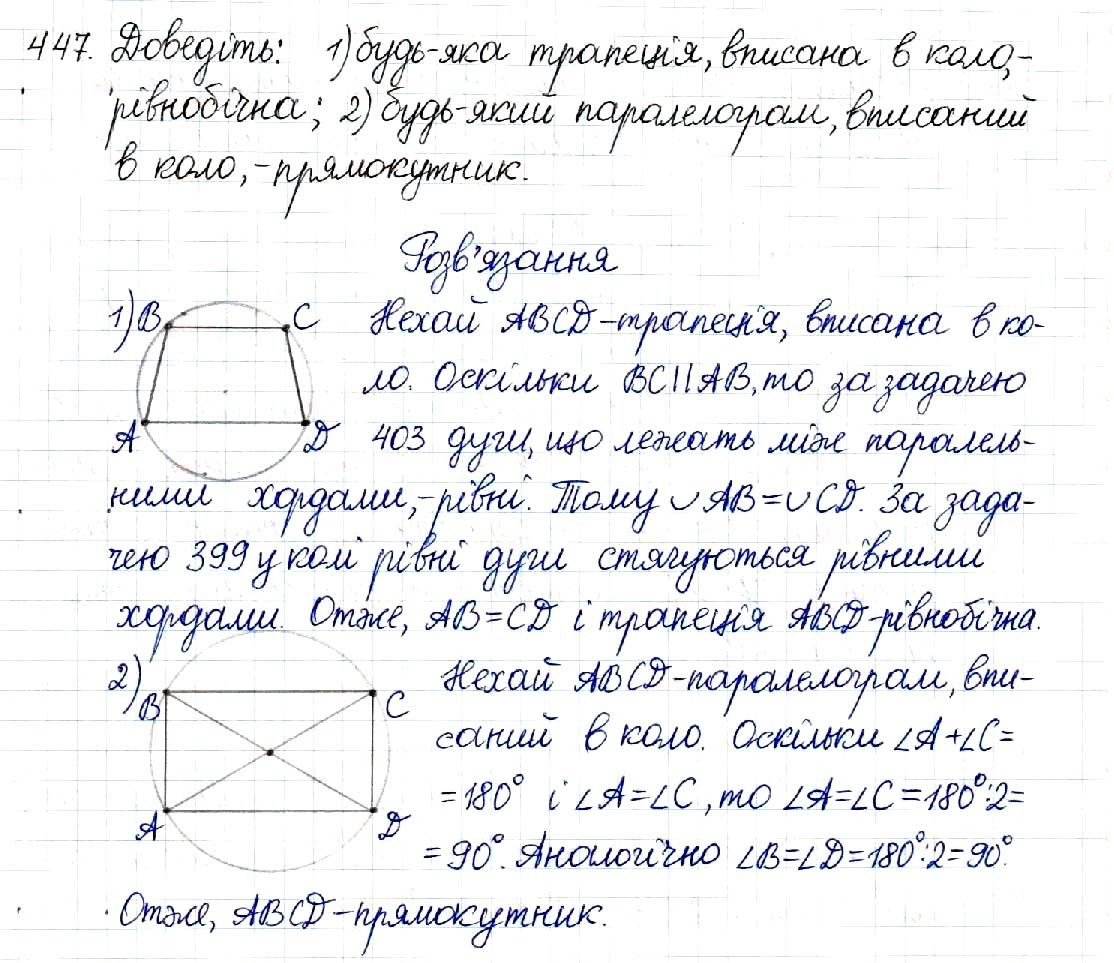 447. Доведіть: 1) будь-яка трапеція, вписана в коло,-
рівнобічна; 2) будь-який паралелограм, вписаний
в коло,-прямокутник.
Розв'язання
1) B C Нехай ABCD-трапеція, вписана в ко-
ло. Оскільки BC||AB, то за задачею
A D 403 дуги, що лежать між паралель-
ними хордами,-рівні. Тому ∪AB=∪CD. За зада-
чею 399 у колі рівні дуги стягуються рівними
хордами. Отже, AB=CD і трапеція ABCD-рівнобічна.
2) B C Нехай ABCD-паралелограм, впи-
саний в коло. Оскільки ∠A+∠C=
=180° і ∠A=∠C, то ∠A=∠C=180°:2=
A D =90°. Аналогічно ∠B=∠D=180°:2=90°.
Отже, ABCD-прямокутник.